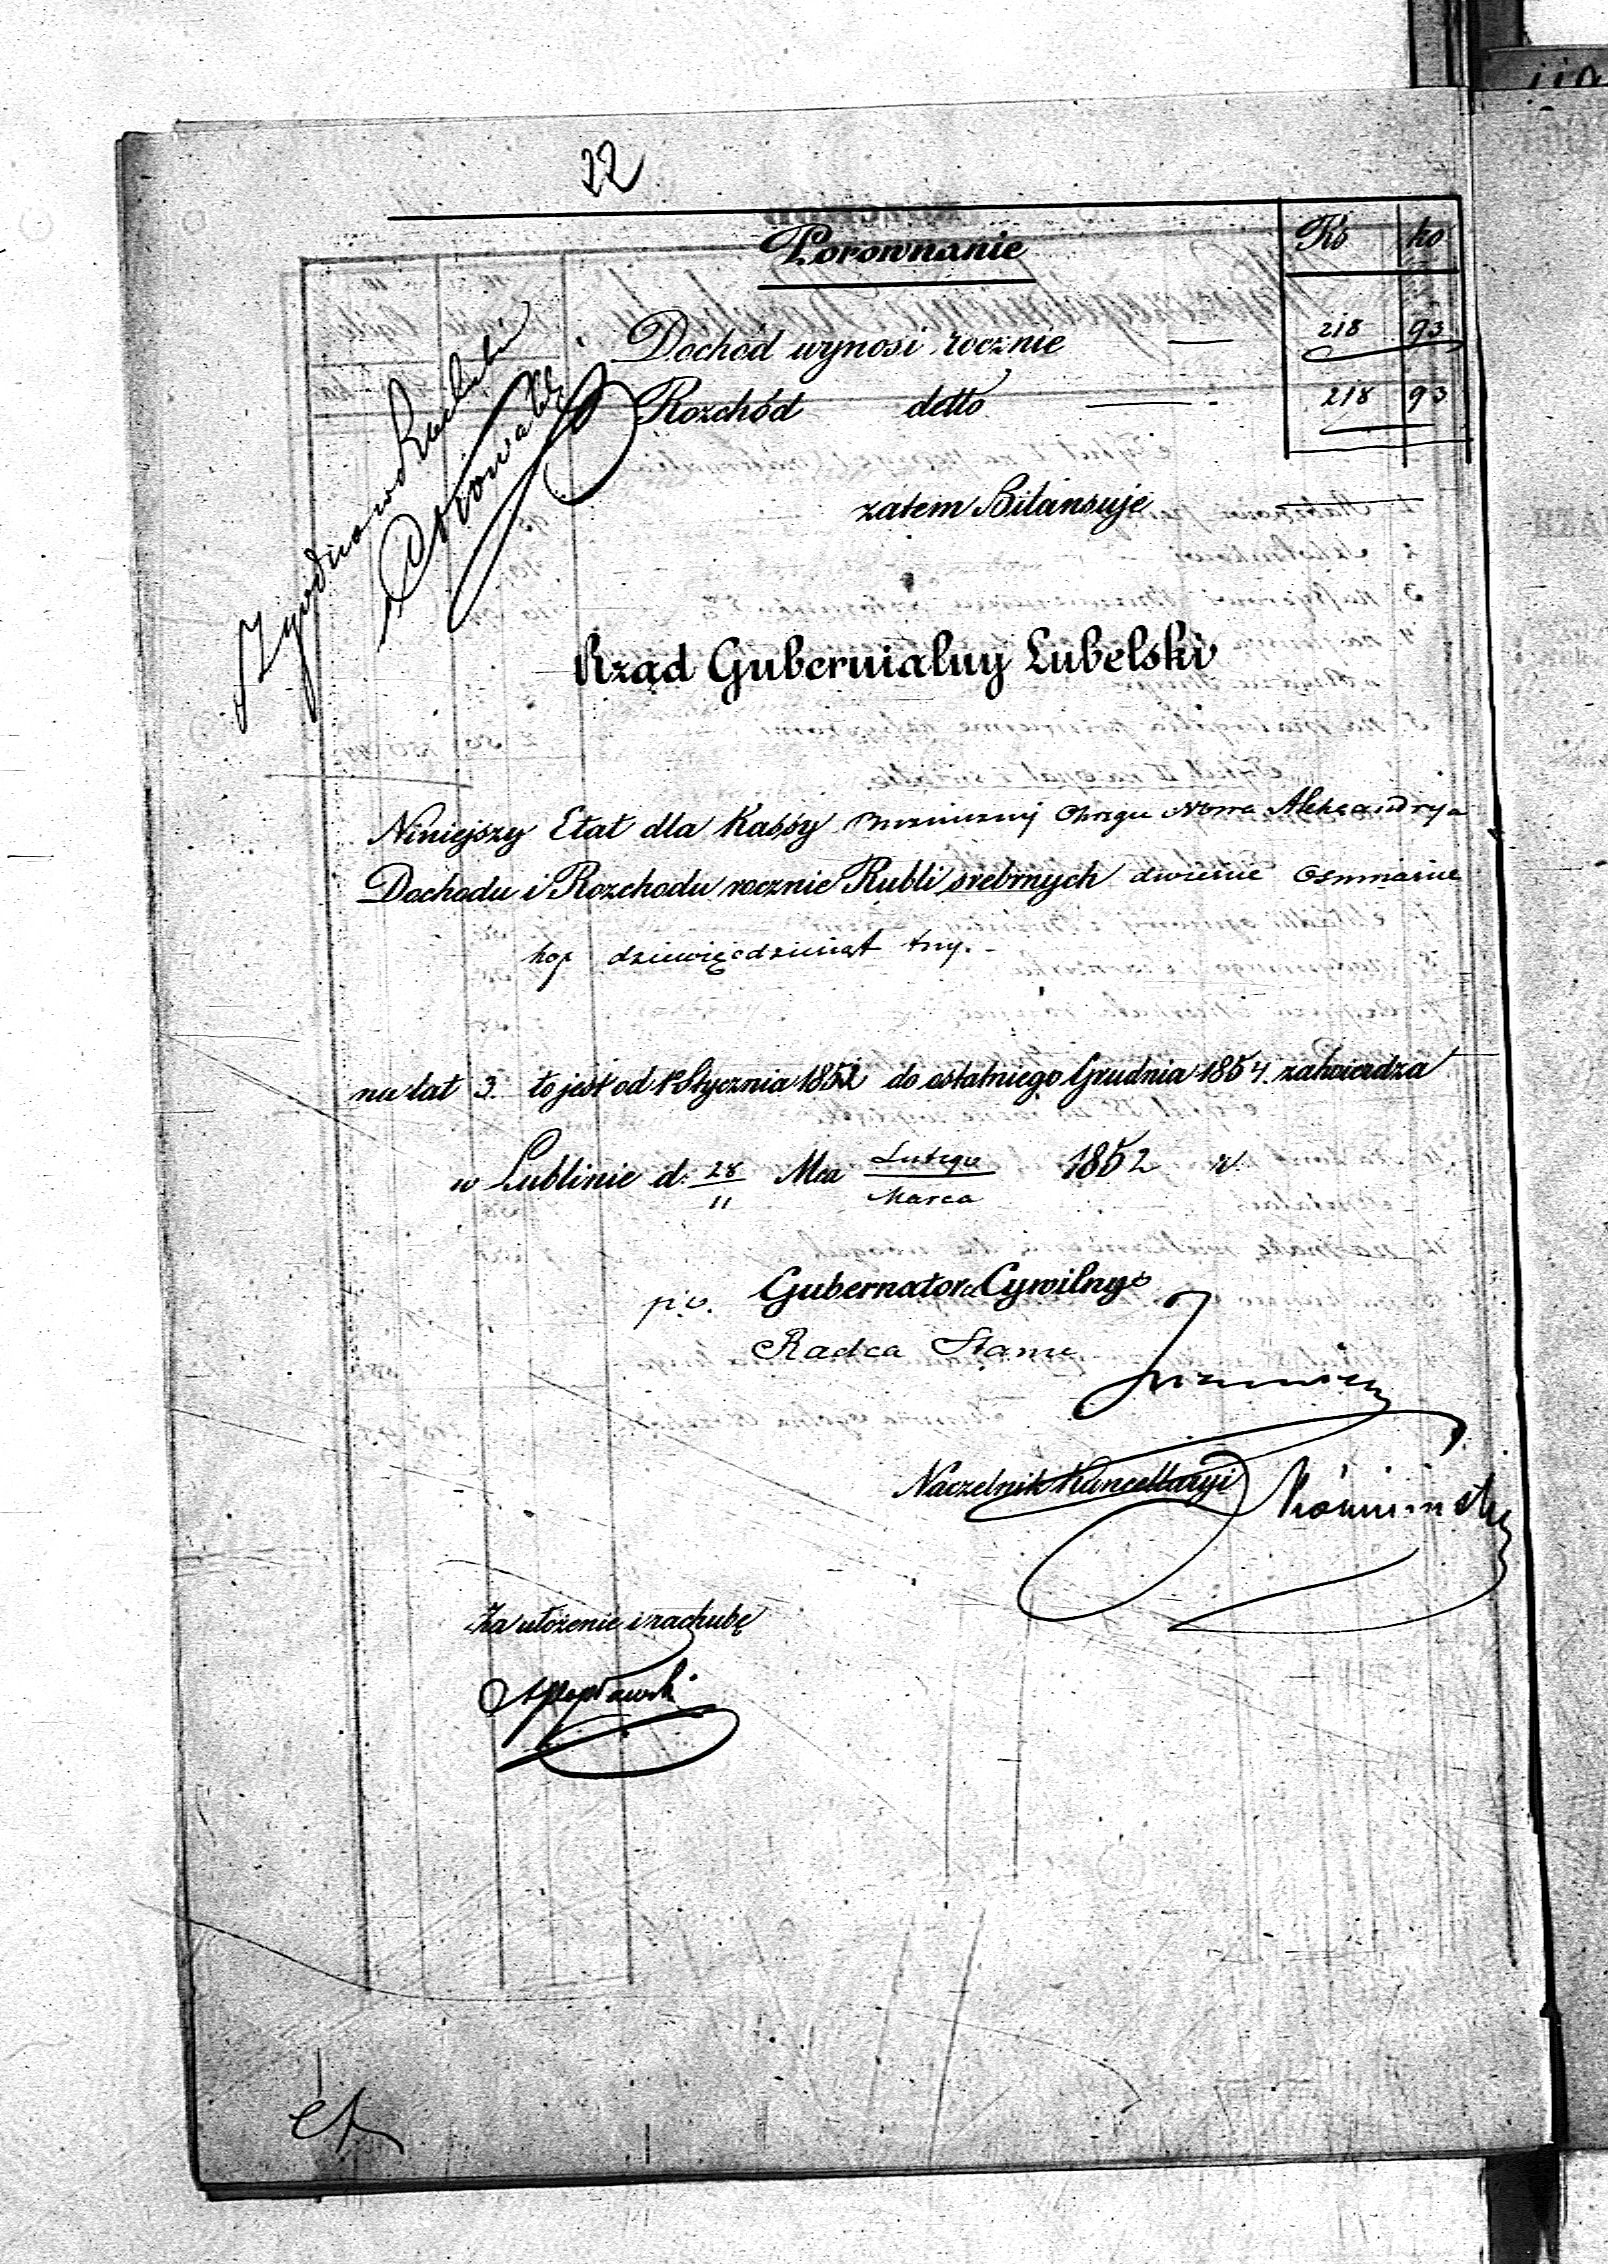 22
Porownanie Rs ko
Dochód wynosi rocznie — 218 93
Rozchód detto — 218 93
zatem Bilansuje
Rząd Gubernialny Lubelski
Niniejszy Etat dla Kassy Bożniczny Okręgu Nowa Aleksandrya
Dochodu i Rozchodu rocznie Rubli srebrnych dwieście osmnaście
kop dziewięćdziesiąt trzy. -
na lat 3. to jest od 1º Stycznia 1852 do ostatniego Grudnia 1854. zatwierdza
w Lublinie d. 28/11 Mca Lutego/Marca 1852 r.
p.o. Gubernatora Cywilnego
Radca Stanu
Naczelnik Kancellaryi
Za ułożenie i rachubę